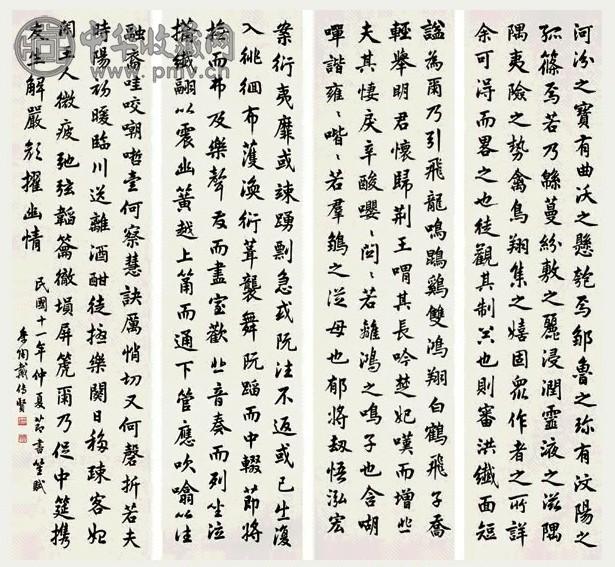 河汾之寶有曲沃之懸匏焉鄒魯之珍有汶陽之
孤篠焉若乃緜蔓紛敷之麗浸潤靈液之滋隅
隈夷險之勢禽鳥翔集之嬉固衆作者之所詳
余可得而畧之也徒觀其制器也則審洪纖面短
謐為爾乃引飛龍鳴鵾鷄雙鴻翔白鶴飛子喬
輕舉明君懷歸荆王喟其長吟楚妃嘆而增悲
夫其悽戾辛酸嚶〻関〻若離鴻之鳴子也含嘲
嘽諧雍〻喈〻若羣鶵之從母也郁捋劫悟泓宏
案衍夷靡或竦踴剽急或既往不返或已出復
入徘徊布濩渙衍葺襲舞既蹈而中輟節將
撫而弗及樂聲發而盡室歡悲音奏而列坐泣
擪纖翮以震幽簧越上筩而通下管應吹噏以往
融裔哇咬嘲哳壹何察慧訣厲悄切又何磬折若夫
時陽初暖臨川送離酒酣徒擾樂闋日移踈客始
闌主人微疲弛弦韜籥徹塤屏篪爾乃促中筵攜
友生解嚴顏擢幽情
民國十一年仲夏節書笙賦
季陶戴傳賢
中华收藏网
www.pmcv.cn